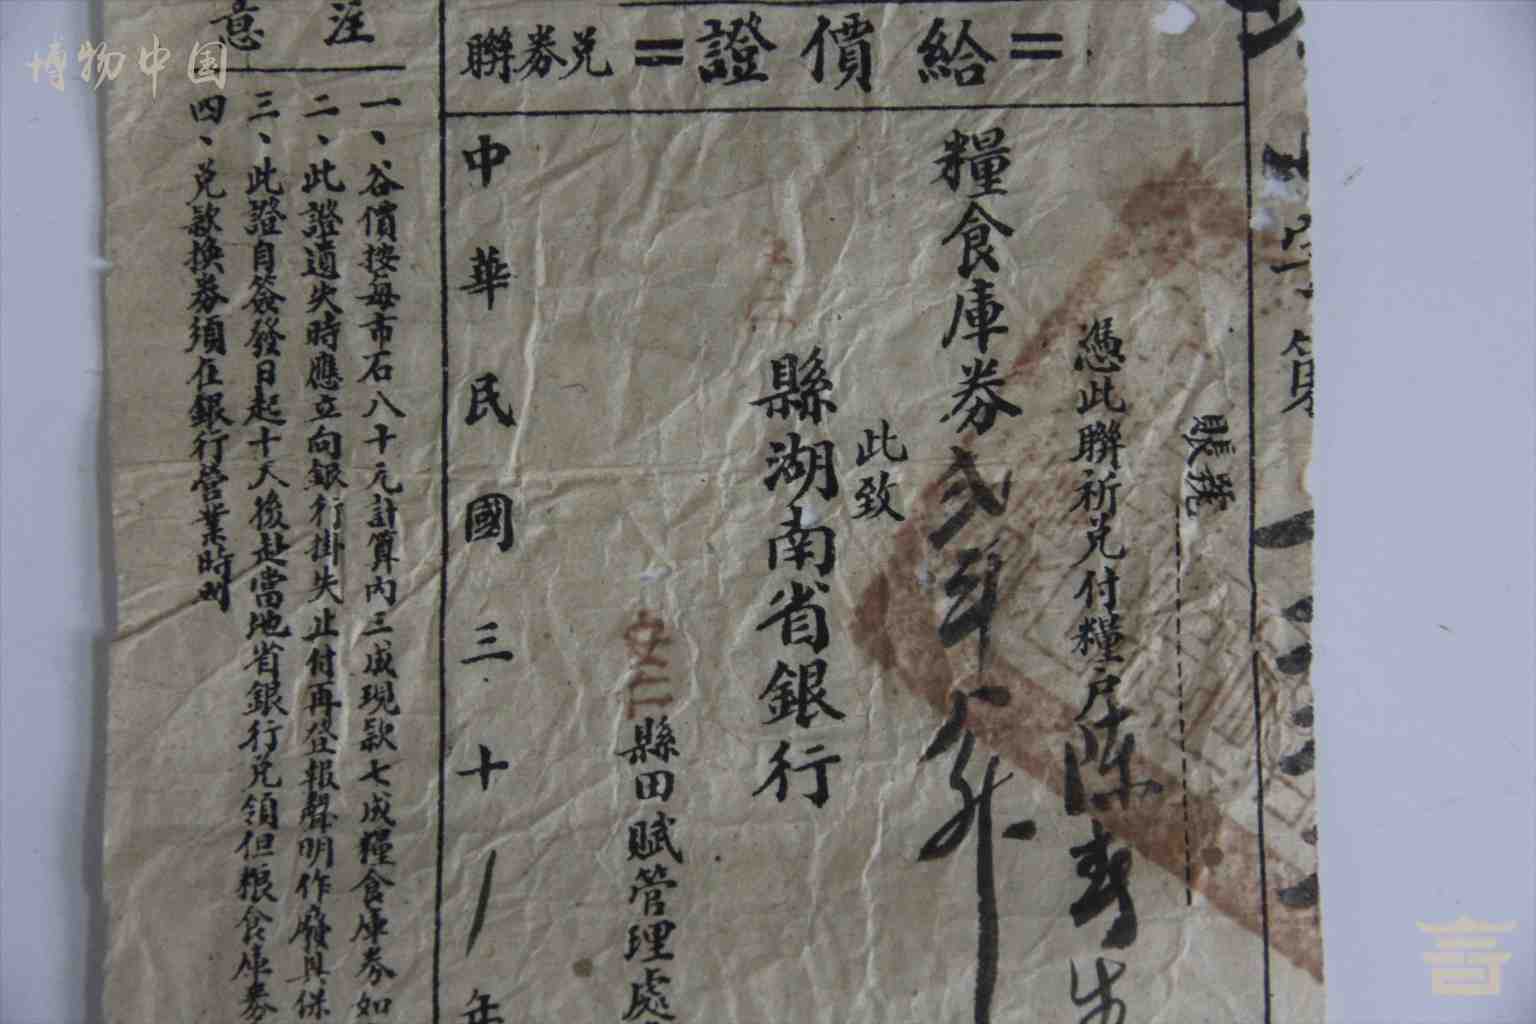 博物中国
=給價證=兑券聯
賬號
憑此聯祈兑付糧户陳壽生
糧食庫券貳斗八升
此致
縣湖南省銀行
安仁縣田賦管理處
中華民國三十年
注意
一、谷價按每市石八十元計算内三成現款七成糧食庫券如
二、此證遺失時應立向銀行掛失止付再登報聲明作廢具保
三、此證自簽發日起十天後赴當地省銀行兑領但粮食庫券
四、兑款換券須在銀行營業時間